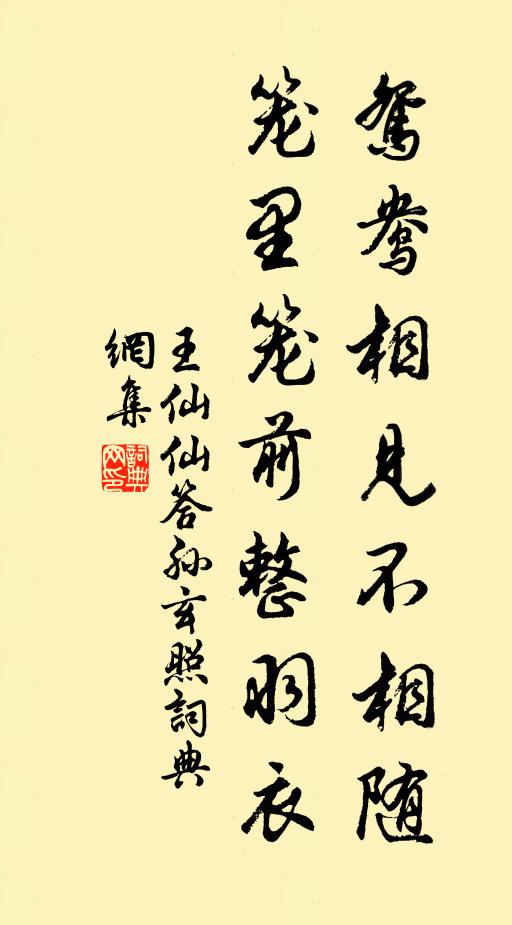 鸳鸯相见不相随
笼里笼前整羽衣
王仙仙答孙玄照詞典
網集
詞典
网印